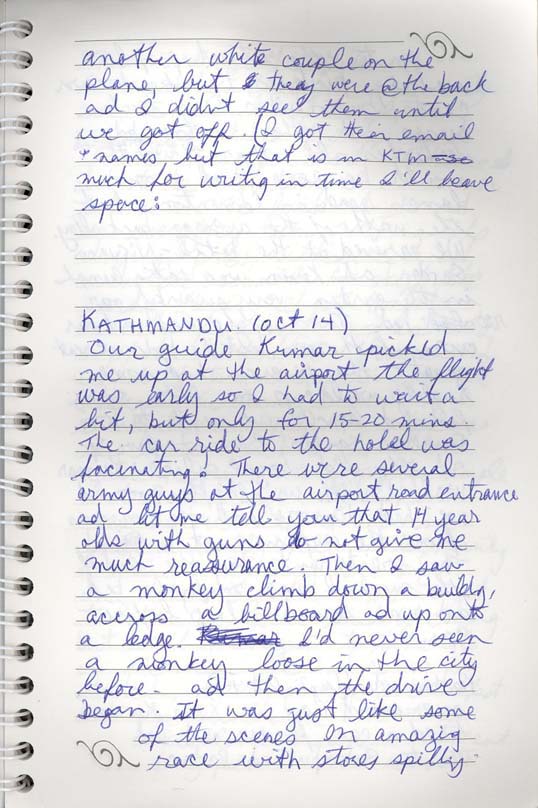 another white couple on the
plane, but they were @ the back
ad I didn't see them until
we got off. (I got their email
+ names, but that is in KTM - so
much for writig in time I'll leave
space:
KATHMANDU. (oct 14)
Our guide Kumar picked
me up at the airport the flight
was early so I had to wait a
bit, but only for 15-20 mins.
The car ride to the hotel was
facinating. There were several
army guys at the airport road entrance
ad let me tell you that 14 year
olds with guns do not give me
much reassurance. Then I saw
a monkey climb down a buildg,
accross a billboard ad up onto
a ledge. I'd never seen
a monkey loose in the city
before - ad then the drive
began. It was just like some
of the scenes in amazig
race with stores spillig